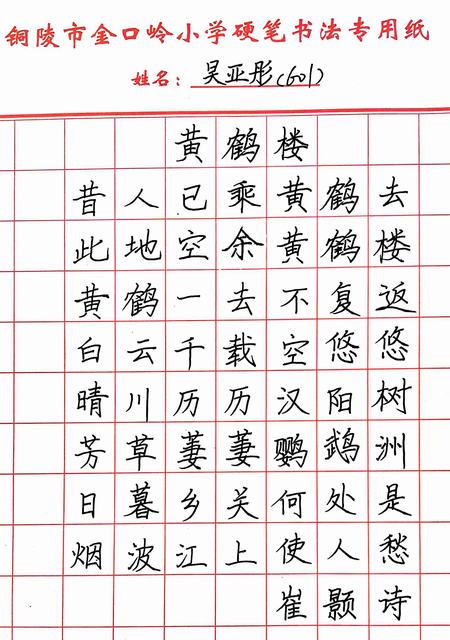 铜陵市金口岭小学硬笔书法专用纸
姓名：吴亚彤(601)
黄鹤楼
昔人已乘黄鹤去
此地空余黄鹤楼
黄鹤一去不复返
白云千载空悠悠
晴川历历汉阳树
芳草萋萋鹦鹉洲
日暮乡关何处是
烟波江上使人愁
崔颢诗